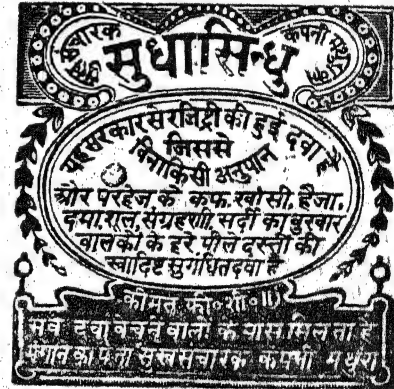 सुख संचारक कंपनी मथुरा का
सुधासिन्धु
यह सरकार से रजिष्ट्री की हुई दवा है
जिससे
बिना किसी अनुपान
और परहेज के कफ, खांसी, हैजा,
दमा, शूल, संग्रहणी, सर्दी का बुखार
बालकों के हरे पीले दस्तों की
स्वादिष्ट सुगंधित दवा है
कीमत फी॰ शी॰ ॥)
सब दवा बेचने वालों के पास मिलता है
मंगाने का पता सुख संचारक कंपनी मथुरा